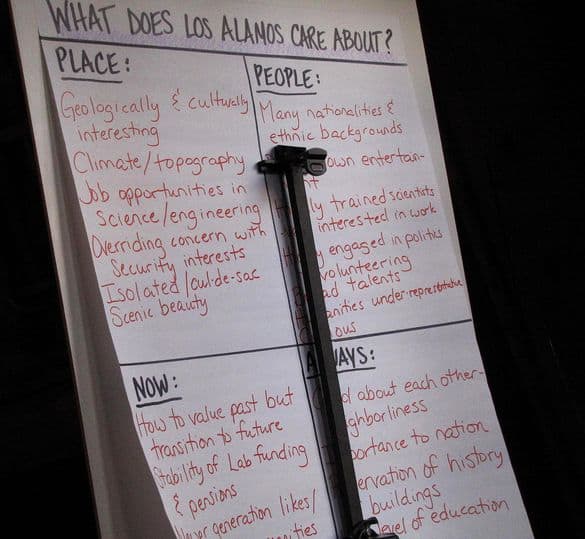 WHAT DOES LOS ALAMOS CARE ABOUT?
PLACE:
Geologically & culturally
interesting
Climate/topography
Job opportunities in
Science/engineering
Overriding concern with
Security interests
Isolated/cul-de-sac
Scenic beauty
PEOPLE:
Many nationalities &
ethnic backgrounds
own entertain-
trained scientists
interested in work
engaged in politics
volunteering
talents
under-representative
NOW:
How to value past but
transition to future
Stability of Lab funding
& pensions
generation likes/
about each other-
to nation
of history
buildings
of education